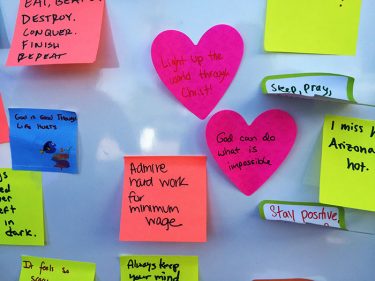 EAT,
DESTROY.
CONQUER.
FINISH
REPEAT
Light up the
world through
Christ!
sleep, pray,
God is Good Though
Life Hurts
God can do
what is
impossible
I miss
Arizona
hot.
Admire
hard work
for
minimum
wage
left
in
dark.
Stay positive
It feels so
Always keep
your mind